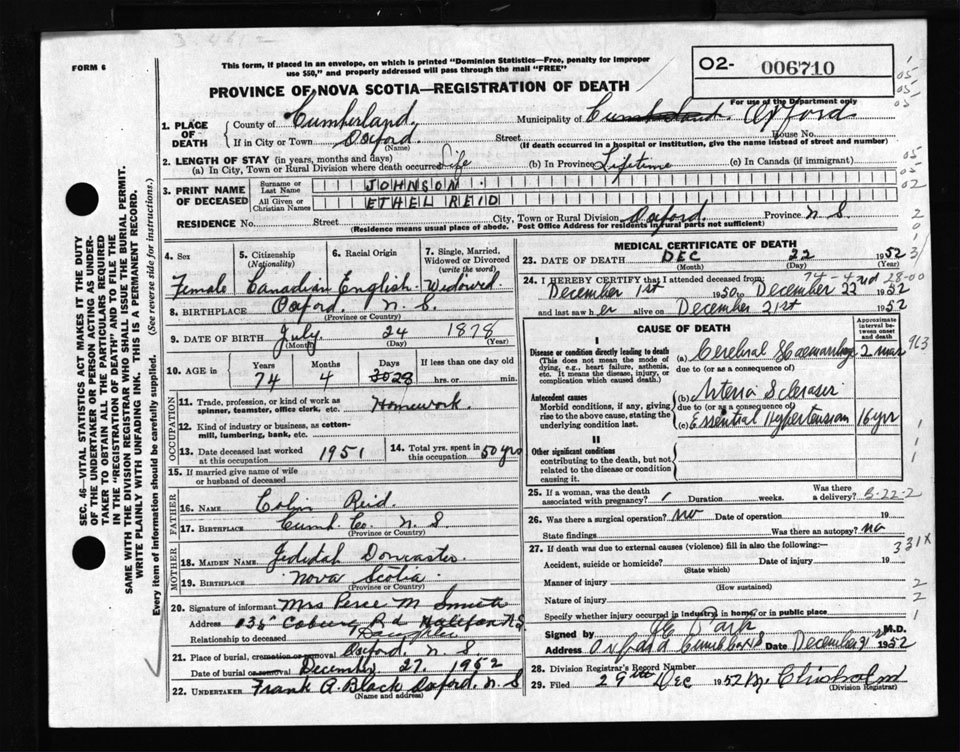 FORM 6
This form, if placed in an envelope, on which is printed "Dominion Statistics—Free, penalty for improper
use $50," and properly addressed will pass through the mail "FREE"
PROVINCE OF NOVA SCOTIA—REGISTRATION OF DEATH
O2- 006710
For use of the Department only
1. PLACE OF DEATH
County of Cumberland Municipality of Cumberland. Oxford
If in City or Town Oxford. (Name) Street House No.
(If death occurred in a hospital or institution, give the name instead of street and number)
2. LENGTH OF STAY (in years, months and days)
(a) In City, Town or Rural Division where death occurred Life (b) In Province Lifetime (c) In Canada (if immigrant)
3. PRINT NAME OF DECEASED
Surname or Last Name JOHNSON
All Given or Christian Names ETHEL REID
RESIDENCE No. Street City, Town or Rural Division Oxford. Province N S.
(Residence means usual place of abode. Post Office Address for residents in rural parts not sufficient)
4. Sex Female
5. Citizenship (Nationality) Canadian
6. Racial Origin English
7. Single, Married, Widowed or Divorced (write the word) Widowed
8. BIRTHPLACE Oxford N. S. (Province or Country)
9. DATE OF BIRTH July 24 1878 (Month) (Day) (Year)
10. AGE in Years 74 Months 4 Days 30 28 If less than one day old hrs. or min.
OCCUPATION
11. Trade, profession, or kind of work as spinner, teamster, office clerk, etc. Homework.
12. Kind of industry or business, as cotton-mill, lumbering, bank, etc.
13. Date deceased last worked at this occupation 1951
14. Total yrs. spent in this occupation 50 yrs
15. If married give name of wife or husband of deceased
FATHER
16. NAME Colin Reid
17. BIRTHPLACE Cumb. Co. N. S (Province or Country)
MOTHER
18. MAIDEN NAME Jedidah Doncaster
19. BIRTHPLACE Nova Scotia (Province or Country)
20. Signature of informant Mrs M. Smith
Address Coburg Rd Halifax N.S
Relationship to deceased Daughter
21. Place of burial, cremation or removal Oxford N S
Date of burial or removal December 27. 1952
22. UNDERTAKER Frank A. Black Oxford. N. S
(Name and address)
MEDICAL CERTIFICATE OF DEATH
23. DATE OF DEATH DEC 22 1952
(Month) (Day) (Year)
24. I HEREBY CERTIFY that I attended deceased from:
December 1st 1950 to December 22nd 1952
and last saw her alive on December 21st 1952
CAUSE OF DEATH
Approximate interval between onset and death
I
Disease or condition directly leading to death
(This does not mean the mode of dying, e.g., heart failure, asthenia, etc. It means the disease, injury, or complication which caused death.)
(a) Cerebral Haemorrhage 2
due to (or as a consequence of)
Antecedent causes
Morbid conditions, if any, giving rise to the above cause, stating the underlying condition last.
(b) Arterio Sclerosis
due to (or as a consequence of)
(c) Essential Hypertension 16 yrs
II
Other significant conditions
contributing to the death, but not related to the disease or condition causing it.
25. If a woman, was the death associated with pregnancy? Duration weeks. Was there a delivery? 5-22-2
26. Was there a surgical operation? no Date of operation 19
State findings Was there an autopsy? no
27. If death was due to external causes (violence) fill in also the following:— 331X
Accident, suicide or homicide? Date of injury 19
(State which)
Manner of injury
(How sustained)
Nature of injury
Specify whether injury occurred in industry, in home, or in public place
Signed by M.D.
Address Oxford Date December 1952
28. Division Registrar's Record Number
29. Filed 29th Dec 1952 M. Chisholm
(Division Registrar)
SEC. 46—VITAL STATISTICS ACT MAKES IT THE DUTY
OF THE UNDERTAKER OR PERSON ACTING AS UNDER-
TAKER TO OBTAIN ALL THE PARTICULARS REQUIRED
IN THE "REGISTRATION OF DEATH" AND TO FILE THE
SAME WITH THE DIVISION REGISTRAR WHO SHALL ISSUE THE BURIAL PERMIT.
WRITE PLAINLY WITH UNFADING INK. THIS IS A PERMANENT RECORD.
Every item of information should be carefully supplied. (See reverse side for instructions.)